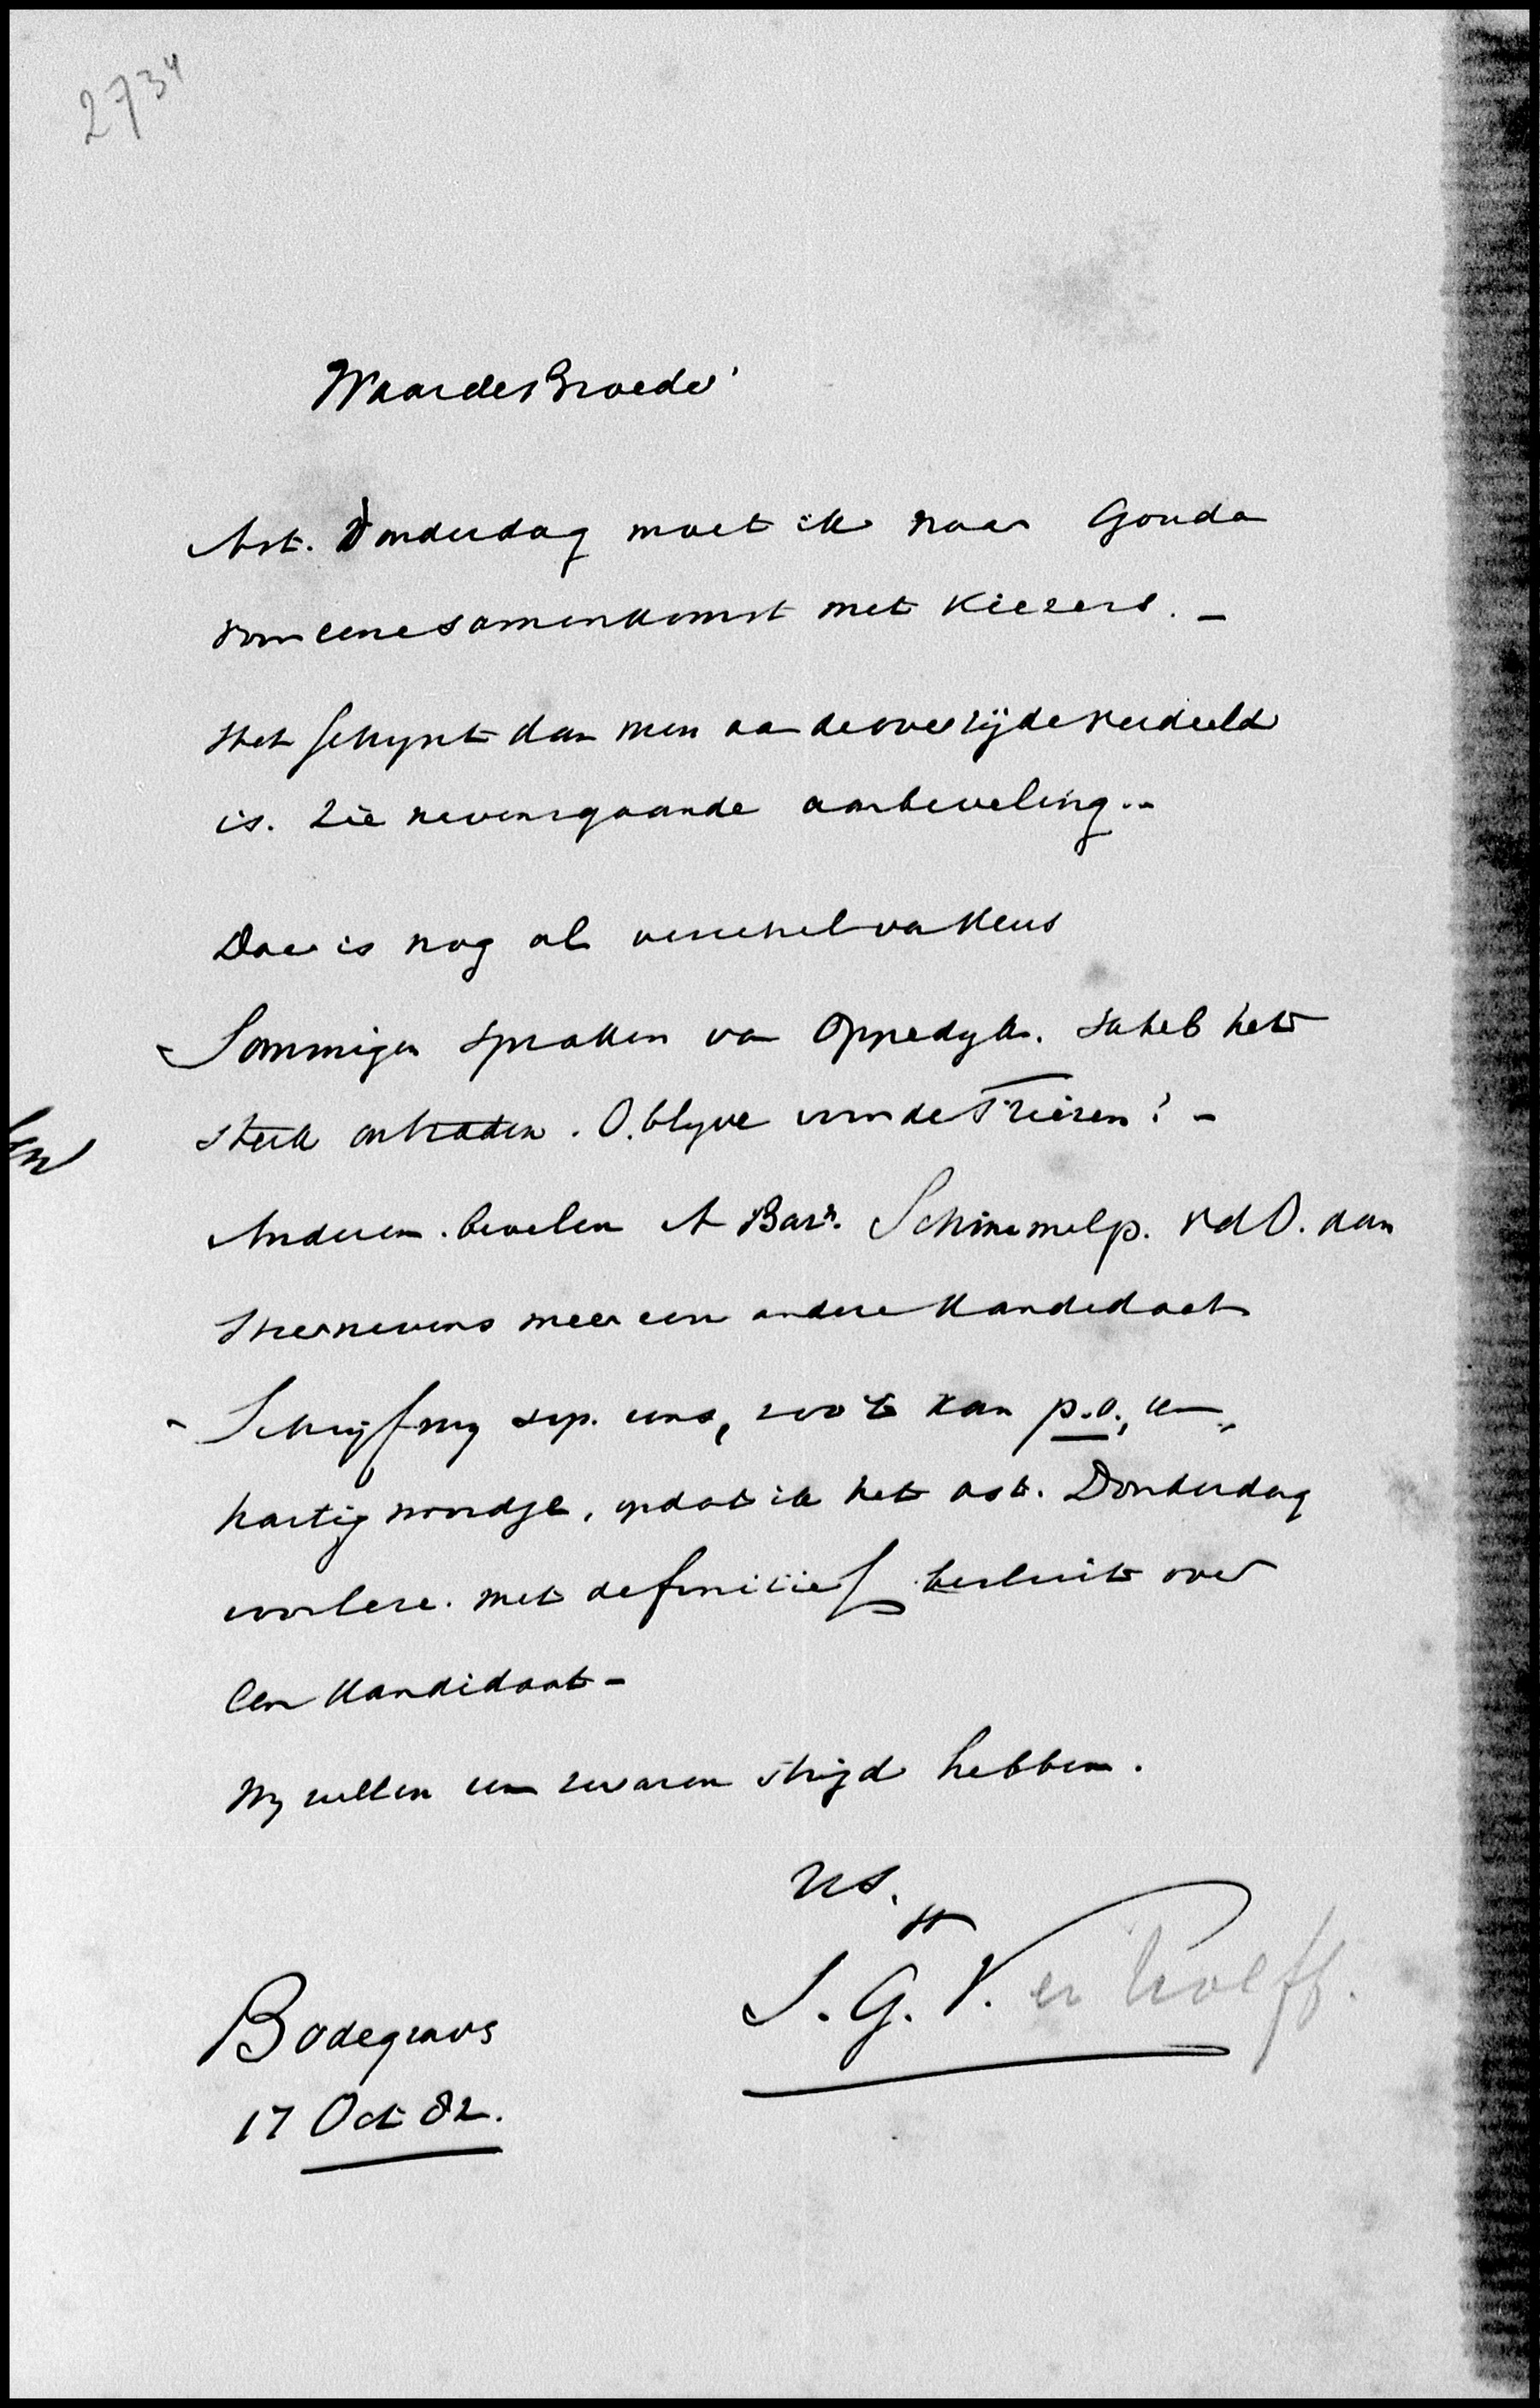 2734
Waarde Broeder
Ast. Donderdag moet ik naar Gouda
voor eene samenkomst met Kiezers. -
Het schynt dat men aan de overzijde verdeeld
is. Zie nevensgaande aanbeveling. -
Daar is nog al verschil van keus
- Sommigen spraken van Oppedyk. Ik heb het
sterk ontraden. O. blyve voor de Friezen! -
Anderen bevelen A Barn. Schimmelp. vd O. aan
Hiernevens meer een andere Kandidaat
- Schryf my svp. eens, zoo 't kan p.o., een
hartig woordje, opdat ik het ast. Donderdag
voorleze. met definitief besluit over
een Kandidaat -
Wy zullen een zwaren strijd hebben.
tt
J. G. Verhoeff.
Bodegrave
17 Oct 82.